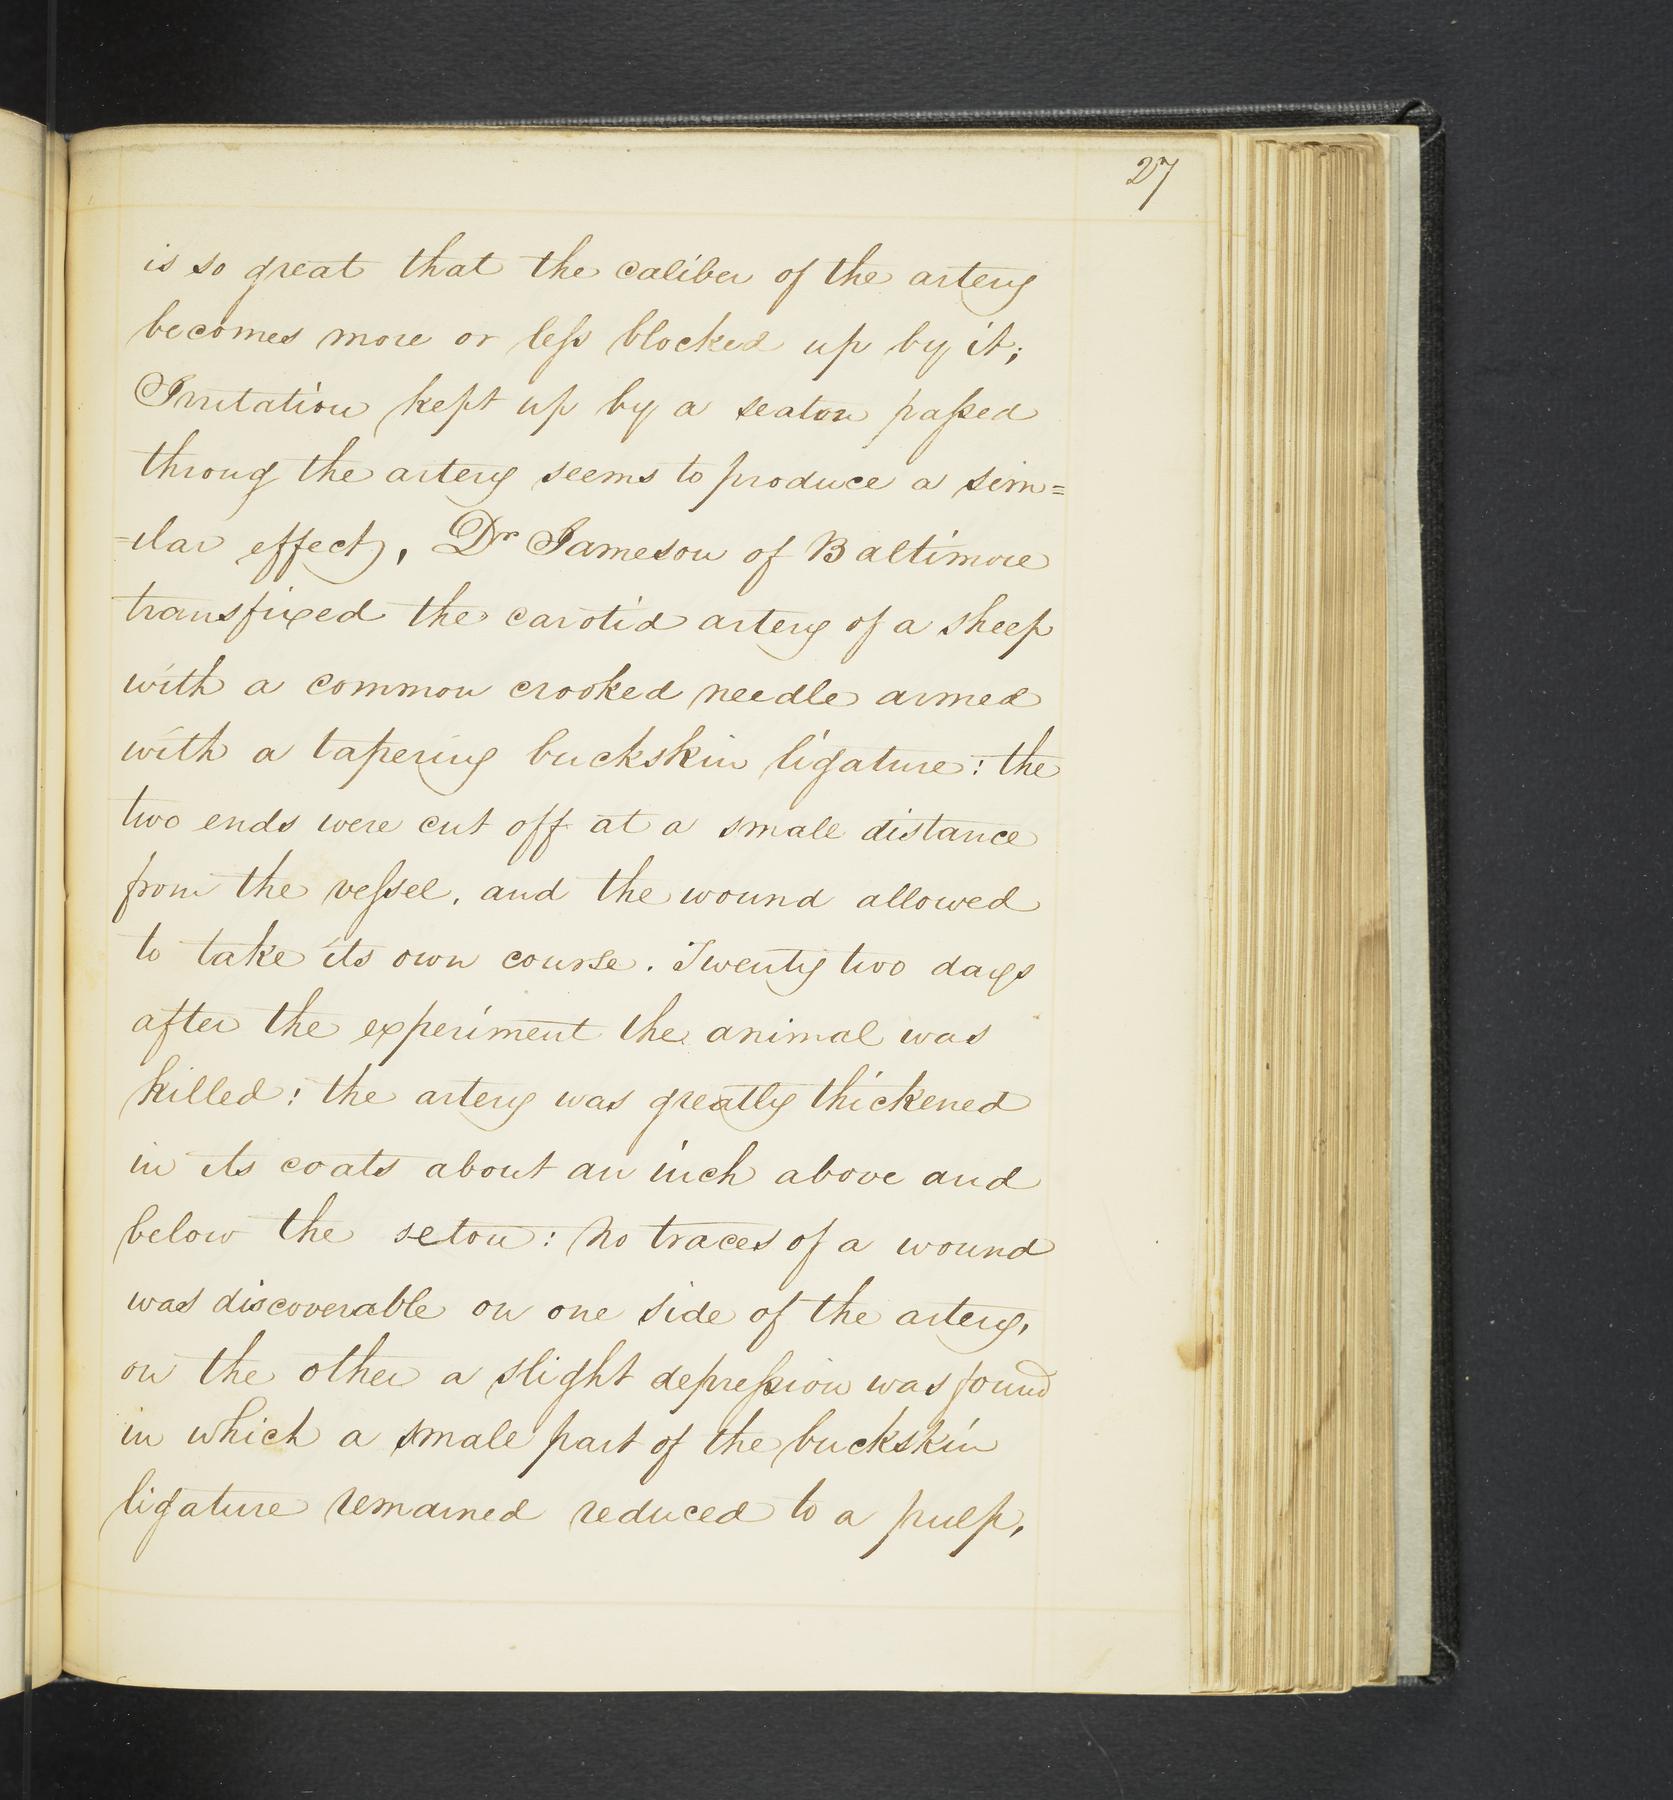 27
is so great that the caliber of the artery
becomes more or less blocked up by it;
Irritation kept up by a seaton passed
throug the artery seems to produce a sim=
=ilar effect, Dr Jameson of Baltimore
transfixed the carotid artery of a sheep
with a common crooked needle armed
with a tapering buckskin ligature: the
two ends were cut off at a small distance
from the vessel, and the wound allowed
to take its own course. Twenty two days
after the experiment the animal was
killed: the artery was greatly thickened
in its coats about an inch above and
below the seton: No traces of a wound
was discoverable on one side of the artery,
on the other a slight depression was found
in which a small part of the buckskin
ligature remained reduced to a pulp,